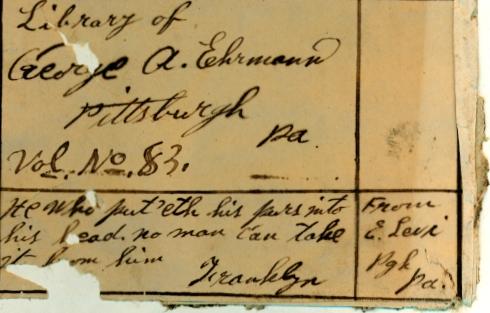 Library of
George A. Ehrmann
Pittsburgh
Pa.
Vol. No. 83.
He who put'eth his purs into
his head no man can take
it from him
Franklyn
From
E. Levi
Pgh
Pa.